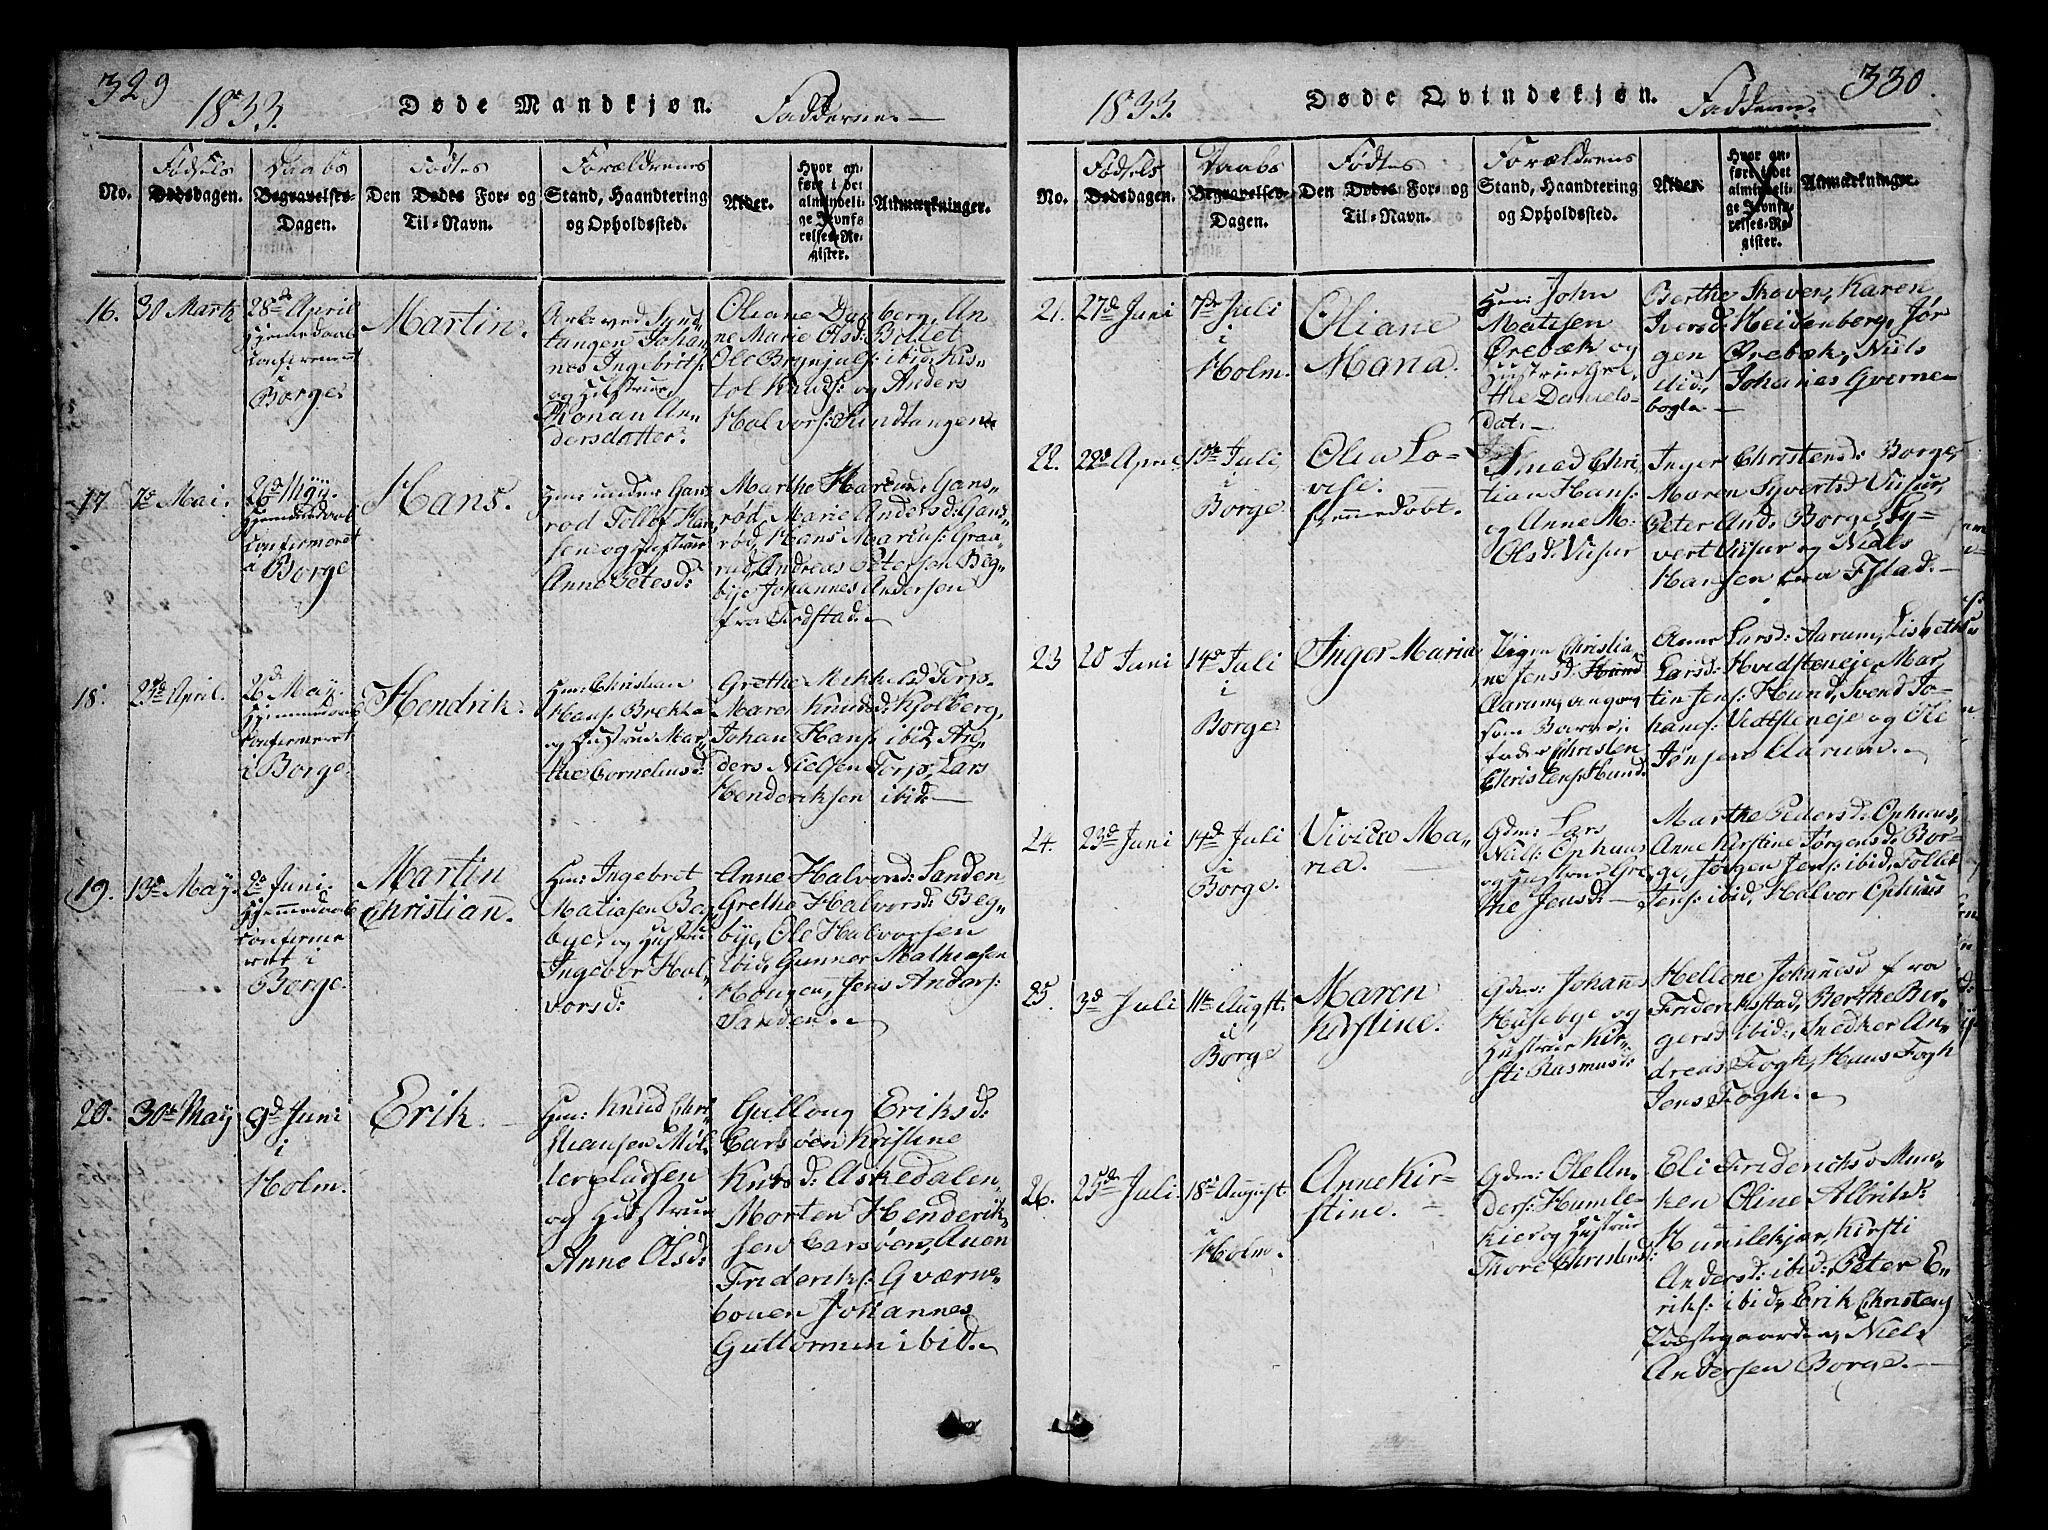 329
1833.
Døde Mandkjøn.
Fadderne.
Fødsels
Daabs
Fødtes
Forældrenes
No.
Dødsdagen.
Begravelses-
Dagen.
Den Dødes For- og
Til-Navn.
Stand, Haandtering
og Opholdssted.
Alder.
Hvor an-
ført i det
almindeli-
ge Jevnfø-
relses-Re-
gister.
Anmærkninger.
16.
30 Martz
28de April
Hjemmedøbt
Confirmeret
i
Borge
Martin.
Arb: ved Sun-
tangen Johan-
nes Ingebrits:
og Hustrue
Ronau An-
dersdatter.
Oliane Danborg, An-
ne Marie Olsd: Bollet
Ole Brynjuls: ibid: Kis-
tol Knuds: og Anders
Halvors: Sundtangen
17.
7de Mai.
26d May.
Hjemmedøbt
Confirmeret
i Borge
Hans.
Hm: under Gans-
rød Tollof Han-
sen og Hustrue
Anne Petersd:
Marthe Hansd: Gans-
rød, Marie Andersd: Gans-
rød, Hans Marius: Graa-
rud, Andreas Peterson Beg-
bye Johannes Andersen
fra Fredstad.
18.
25de April.
26d May.
Hjemmedøbt
Confirmeret
i Borge.
Hendrik.
Hm: Christian
Hans: Brekke
og Hustrue Mar-
the Corneliusd:
Grethe Mikkelsd Torp,
Maren Knudsd: Kjølberg,
Johan Hans: ibid, An-
ders Nielsen Torp, Lars
Henderiksen ibid
19.
13de May.
2de Juni.
Hjemmedøbt
Confirme
ret i
Borge.
Martin
Christian.
Hm: Ingebret
Matiasen Beg-
bye, og Hustrue
Ingebor Hal-
vorsd:
Anne Halvorsd: Sanden,
Grethe Halvorsd: Beg-
bye, Ole Halvorsen
ibid, Gunner Mathiasen
Hougen, Jens Anders:
Sanden.
20.
30te May
9d Juni
i
Holm.
Erik.
Hm: Knud Chri-
stiansen Møl-
lerpladsen
og Hustrue
Anne Olsd:
Gullong Eriksd:
Carsøen Kristine
Knudsd: Askedalen,
Morten Henderik-
sen Carsøen, Anen
Frideriks: Gværne-
bouen Johannes
Guttormsen ibid.
330.
1833.
Døde Qvindekjøn.
Fadderne.
Fødsels
Daabs
Fødtes
Forældrens
No.
Dødsdagen.
Begravelses-
Dagen.
Den Dødes For- og
Til-Navn.
Stand, Haandtering
og Opholdssted.
Alder.
Hvor an-
ført i det
almindeli-
ge Jevnfø-
relses-Re-
gister.
Anmærkninger.
21.
27de Juni
7de Juli
i
Holm.
Oliane
Maria.
Hm: John
Matisen
Ørebæk og
Hustrue Gre-
the Daniels-
dat.
Berthe Skoven, Karen
Iversd: Heidenberg, Jør
gen Ørebæk, Niels
ibid, Johanes Gverne-
bogta.
22.
22de April
15de Juli
i
Borge
Olea Lo-
vise.
hjemmedøbt.
Smed Chri-
tian Hans:
og Anne M:
Olsd: Visur
Inger Christensd: Borge,
Maren Syvertsd Visur,
Peter And: Borge, Sy-
vert Visur og Niels
Hansen fra Fstad.
23
20 Juni
14de Juli
i
Borge
Inger Maria
Pigen Christia-
ne Jensd: Hund
Aarum, angav
som Barne-
fader Christen
Christens: Hund.
Anne Larsd: Aarum, Lisbethe
Larsd: Hvidsteneje, Mar-
tin Jens: Hund, Svend Jo-
hans: Vidsteneje og Ole
Jensen Aarum.
24.
23d Juni
14d Juli
i
Borge.
Vivica Ma-
ria.
Gdm: Lars
Niels: Ophuus
og Hustrue Gre-
the Jensd:
Marthe Pedersd: Ophuus,
Anne Kirstine Jørgensd: Bor-
ge, Jørgen Jens: ibid, Tollef
Jens: ibid, Halvor Ophuus
25.
3d Juli
11te Augst.
i
Borge
Maren
Kirstine.
Gdm: Johans
Husebye og
Hustrue Kir-
sti Rasmusd:
Hellene Johansd fra
Frideriksstad, Berthe Ber-
gersd ibid:, Snedker An-
dreas Fogh, Hans Fogh
Jens Fogh.
26.
25de Juli.
18de August.
i
Holm.
Anne Kir-
stine.
Gdm: Ole An-
ders: Humle-
kier og Hustrue
Thore Christensd:
Eli Fridericksd Mun-
ken Oline Albriksd:
Humlekjær, Kirsti
Andersd: ibid: Peter E-
riks: ibid, Erik Christens
Præstegaarden, Niels
Andersen Borge.